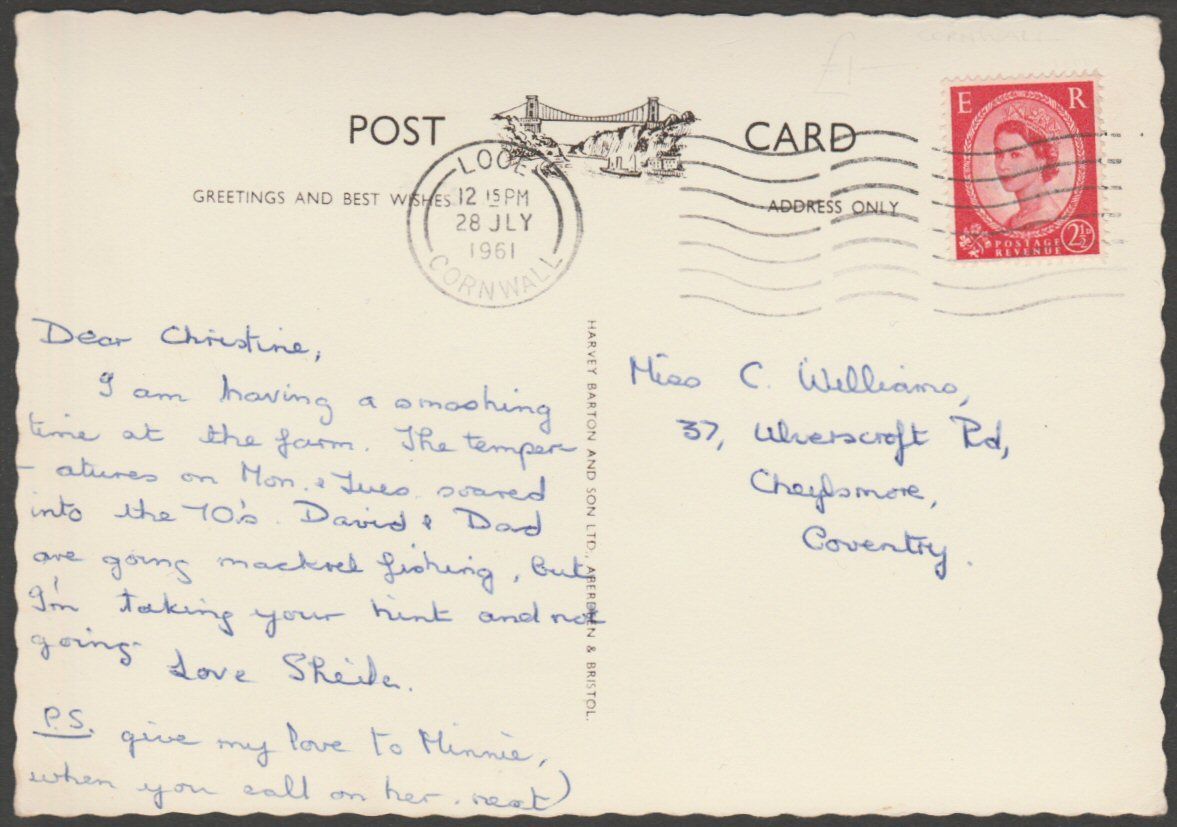 CORNWALL
£1-
POST CARD
GREETINGS AND BEST WISHES
ADDRESS ONLY
LOOE
12 15 PM
28 JLY
1961
CORNWALL
E R
POSTAGE
REVENUE
2½D
Dear Christine,
I am having a smashing
time at the farm. The temper-
- atures on Mon. & Tues. soared
into the 70's. David & Dad
are going mackrel fishing, but
I'm taking your hint and not
going.
Love Sheila.
P.S. give my love to Minnie,
when you call on her. next)
HARVEY BARTON AND SON LTD., ABERDEEN & BRISTOL.
Miss C. Williams,
37, Ulverscroft Rd,
Cheylsmore,
Coventry.